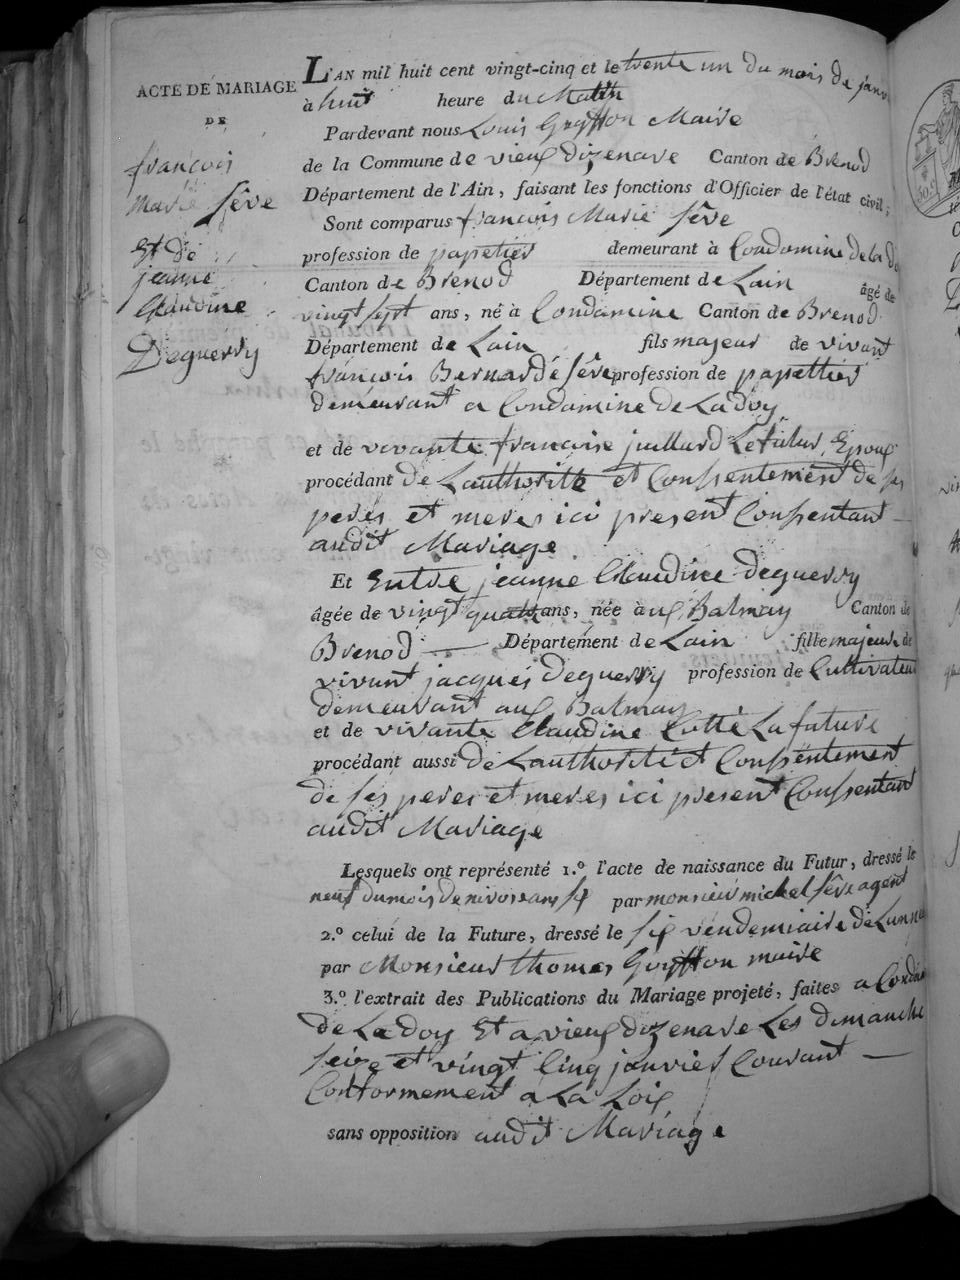 ACTE DE MARIAGE
DE
françois
marie Sêve
Et de
jeanne
Claudine
Deguerry
L'AN mil huit cent vingt-cinq et le trente un du mois de janv
à huit heure du Matin
Pardevant nous Louis Gryffon Maire
de la Commune de vieux dizenave Canton de Brenod
Département de l'Ain, faisant les fonctions d'Officier de l'état civil;
Sont comparus françois Marie Sêve
profession de papetier demeurant à Condamine de la do
Canton de Brenod Département de Lain âgé de
vingt sept ans, né à Condamine Canton de Brenod
Département de Lain fils majeur de vivant
françois Bernard é Sêve profession de papettier
demeurant a Condamine de La doy
et de vivante françoise juillard Le futur Epoux
procédant de Lauthorité et Conssentement de ses
peres et meres ici present Conssentant
audit Mariage
Et Entre jeanne Claudine deguerry
âgée de vingt quatre ans, née à aux Balmay Canton de
Brenod Département de Lain fille majeure de
vivant jacques deguerry profession de Cultivateur
demeurant aux Balmay
et de vivante Claudine Cotte La future
procédant aussi de Lauthorité et Conssentement
de ses peres et meres ici present Conssentant
audit Mariage
Lesquels ont représenté 1.º l'acte de naissance du Futur, dressé le
neuf du mois de nivose ans six par monsieur michel sêve agent
2.º celui de la Future, dressé le six vendemiaire de Lan
par Monsieur thomas Gryffon maire
3.º l'extrait des Publications du Mariage projeté, faites a Condam
de La doy Et a vieux dizenave Les dimanche
seize et vingt Cinq janvier Courant
Conformement a La Loix
sans opposition audit Mariage